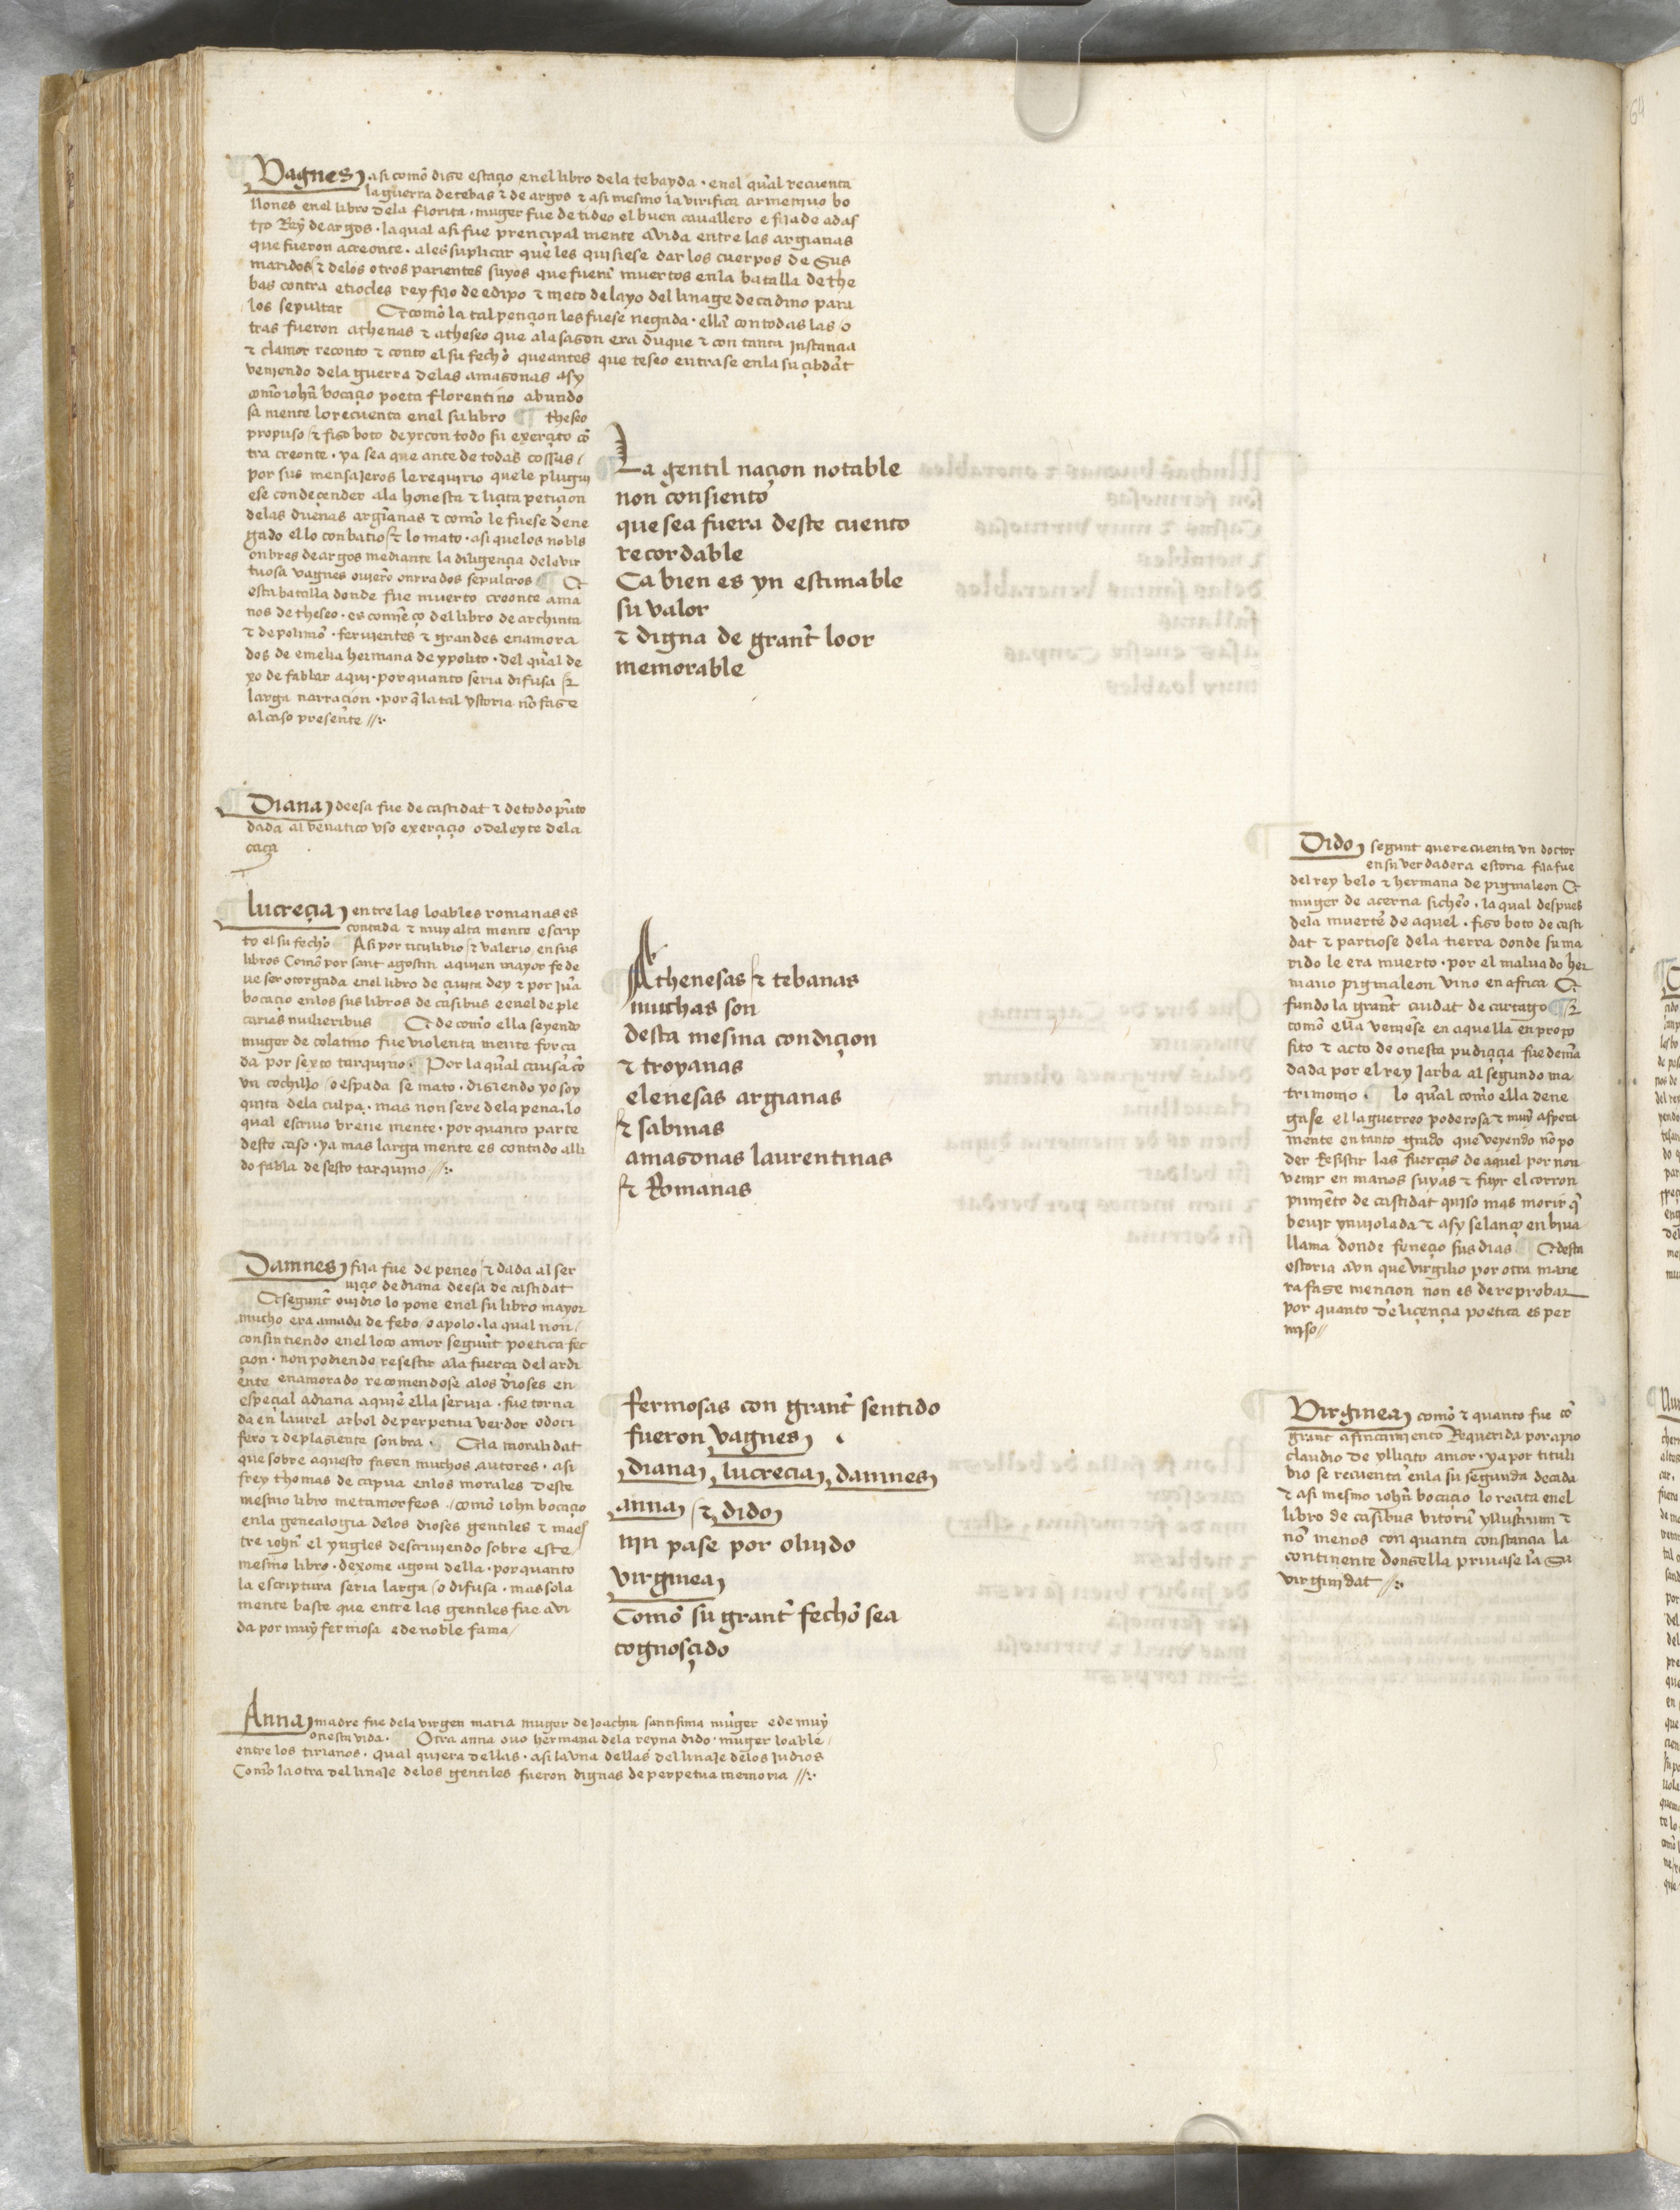 Vagnes asi como dise estaçio enel libro dela tebayda · enel qual recuenta
la guerra de tebas τ de argos τ asi mesmo la virifica armenino bo
llones enel libro dela fiorita · muger fue de tideo el buen cauallero e fija de adas
tro Rey de argos · la qual asi fue prencipal mente avida entre las argianas
que fueron a creonte · a les suplicar que les quisiese dar los cuerpos de Sus
maridos τ delos otros parientes suyos que fuerõ muertos enla batalla de the
bas contra etiocles rey fijo de edipo τ nieto de layo del linage de cadino para
los sepultar Et como la tal petiçion les fuese negada · ella con todas las o
tras fueron athenas τ atheseo que ala sason era duque τ con tanta instancia
τ clamor reconto τ conto el su fecho que antes que teseo entrase enla su çibdat
veniendo dela guerra delas amasonas asy
como iohñ bocaçio poeta florentino abundo
sa mente lo recuenta enel su libro theseo
propuso τ fiso boto de yr con todo su exerçito cõ
tra creonte · ya sea que ante de todas cossas /
por sus mensajeros le requirio que le plugui
ese condeçender ala honesta τ liçita petiçion
delas dueñas argianas τ como le fuese dene
gado ello conbatio τ lo mato · asi quelos nobls
onbres de argos mediante la diligençia dela vir
tuosa vagnes ouierõ onrrados sepulcros Et
esta batalla donde fue muerto creonte a ma
nos de theseo · es comẽço del libro de archita
τ de polimõ · feruientes τ grandes enamora
dos de emelia hermana de ypolito · del qual de
xo de fablar aqui · por quanto seria difusa τ
larga narracion · por q̃ la tal ystoria nõ fase
al caso presente //:·
La gentil naçion notable
non consiento
que sea fuera deste cuento
recordable
Ca bien es yn estimable
su valor
τ digna de grant loor
memorable
Diana deesa fue de castidat τ de todo pũto
dada al venatico vso exerçiçio o deleyte dela
caça
lucreçia entre las loables romanas es
contada τ muy alta mente escrip
to el su fecho Asi por titu libio τ valerio en sus
libros Como por sant agostin a quien mayor fe de
ue ser otorgada enel libro de çiuita dey τ por juã
bocaçio enlos sus libros de casibus e enel de ple
carias mulieribus Et de como ella seyendo
muger de colatino fue violenta mente força
da por sexto tarquino · Por la qual causa cõ
vn cochillo / o espada se mato · disiendo yo soy
quita dela culpa · mas non sere dela pena · lo
qual escriuo breue mente · por quanto parte
deste caso · ya mas larga mente es contado alli
do fabla de sesto tarquino //:·
Athenesas τ tebanas
muchas son
desta mesma condiçion
τ troyanas
elenesas argianas
τ sabinas
amasonas laurentinas
τ Romanas
Dido segunt que recuenta vn doctor
en su verdadera estoria fija fue
del rey belo τ hermana de pigmaleon Et
muger de acerna sicheo · la qual despues
dela muerte de aquel · fiso boto de casti
dat τ partiose dela tierra donde su ma
rido le era muerto · por el maluado her
mano pigmaleon vino en africa Et
fundo la grant çiudat de cartago Et
como ella veniese en aquella en propo
sito τ acto de onesta pudiçiçia fue demã
dada por el rey jarba al segundo ma
trimonio · lo qual como ella dene
gase el la guerreo poderosa τ muy aspera
mente en tanto grado que veyendo nõ po
der Resistir las fuerças de aquel por non
venir en manos suyas τ fuyr el corron
pimẽto de castidat quiso mas morir q̃
beuir ynuiolada τ asy se lanço en biua
llama donde feneçio sus dias Et desta
estoria avn que virgilio por otra mane
ra fase mencion non es de reprobar
por quanto de liçençia poetica es per
miso //
Damnes fija fue de peneo τ dada al ser
uiçio de diana deesa de castidat
Et segunt ouidio lo pone enel su libro mayor
mucho era amada de febo / o apolo · la qual non /
consintiendo enel loco amor segunt poetica fic
çion · non podiendo resestir ala fuerça del ardi
ente enamorado recomendose alos dioses en
espeçial a diana a quiẽ ella seruia · fue torna
da en laurel arbol de perpetua verdor odori
fero τ de plasiente sonbra · Et la moralidat
que sobre aquesto fasen muchos autores · asi
frey thomas de capua enlos morales deste
mesmo libro metamorfeos · / como iohñ bocaçio
enla genealogia delos dioses gentiles τ maes
tre iohñ el yngles descriuiendo sobre este /
mesmo libro · dexome agora della · por quanto
la escriptura seria larga / o difusa · mas sola
mente baste que entre las gentiles fue avi
da por muy fermosa e de noble fama /
fermosas con grant sentido
fueron vagnes
diana lucrecia damnes
anna τ dido
nin pase por oluido
virginea
Como su grant fecho sea
cognosçido
Virginea como τ quanto fue cõ
grant afincamiento Requerida por apio
claudio de yllicito amor · ya por tituli
bio se recuenta enla su segunda decada
τ asi mesmo iohñ bocaçio lo reçita enel
libro de casibus virorũ yllustrium τ
nõ menos con quanta constancia la
continente donsella priuase la su
virginidat //:·
Anna madre fue dela virgen maria muger de Joachin santisima muger e de muy
onesta vida · Otra anna ouo hermana dela reyna dido · muger loable /
entre los tirianos · qual quiera dellas · asi la vna dellas del linaje delos judios
Como la otra del linaje delos gentiles fueron dignas de perpetua memoria //:·
64